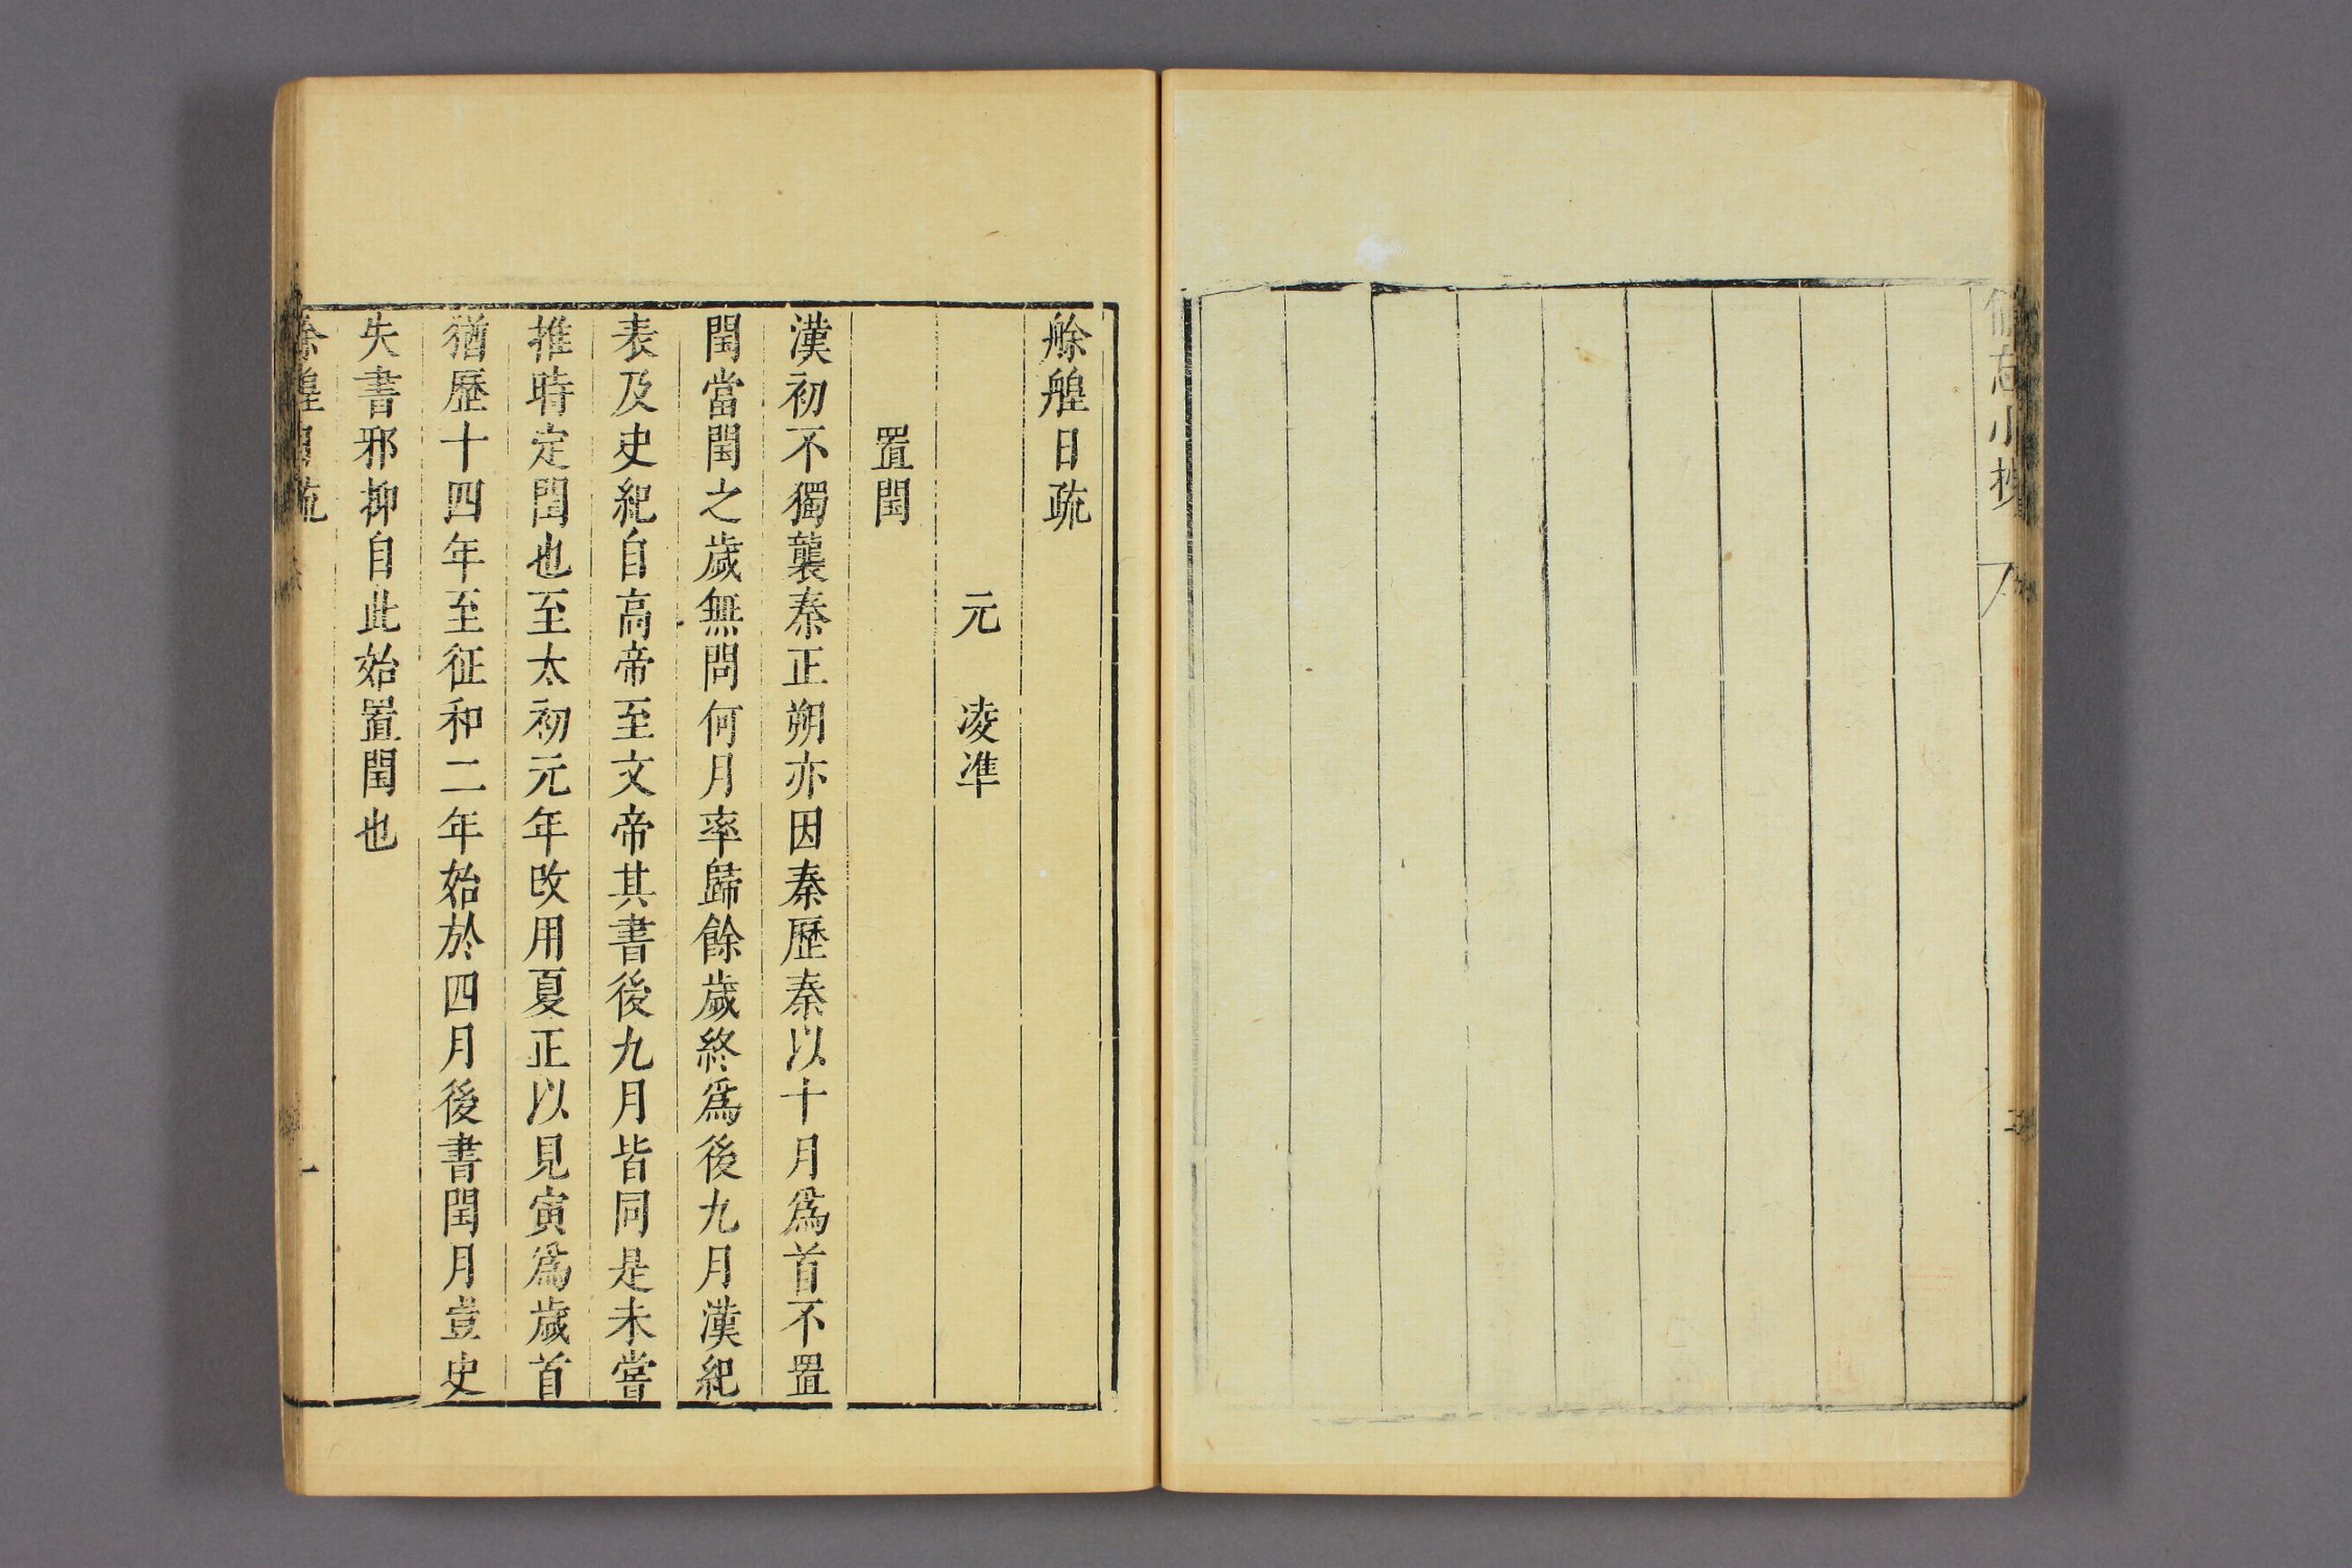 備忘小抄
二
艅艎日疏
元 凌準
置閏
漢初不獨襲秦正朔亦因秦歷秦以十月爲首不置
閏當閏之歲無問何月率歸餘歲終爲後九月漢紀
表及史紀自高帝至文帝其書後九月皆同是未嘗
推時定閏也至太初元年改用夏正以見寅爲歲首
猶歷十四年至征和二年始於四月後書閏月豈史
失書邪抑自此始置閏也
艅艎日疏
一